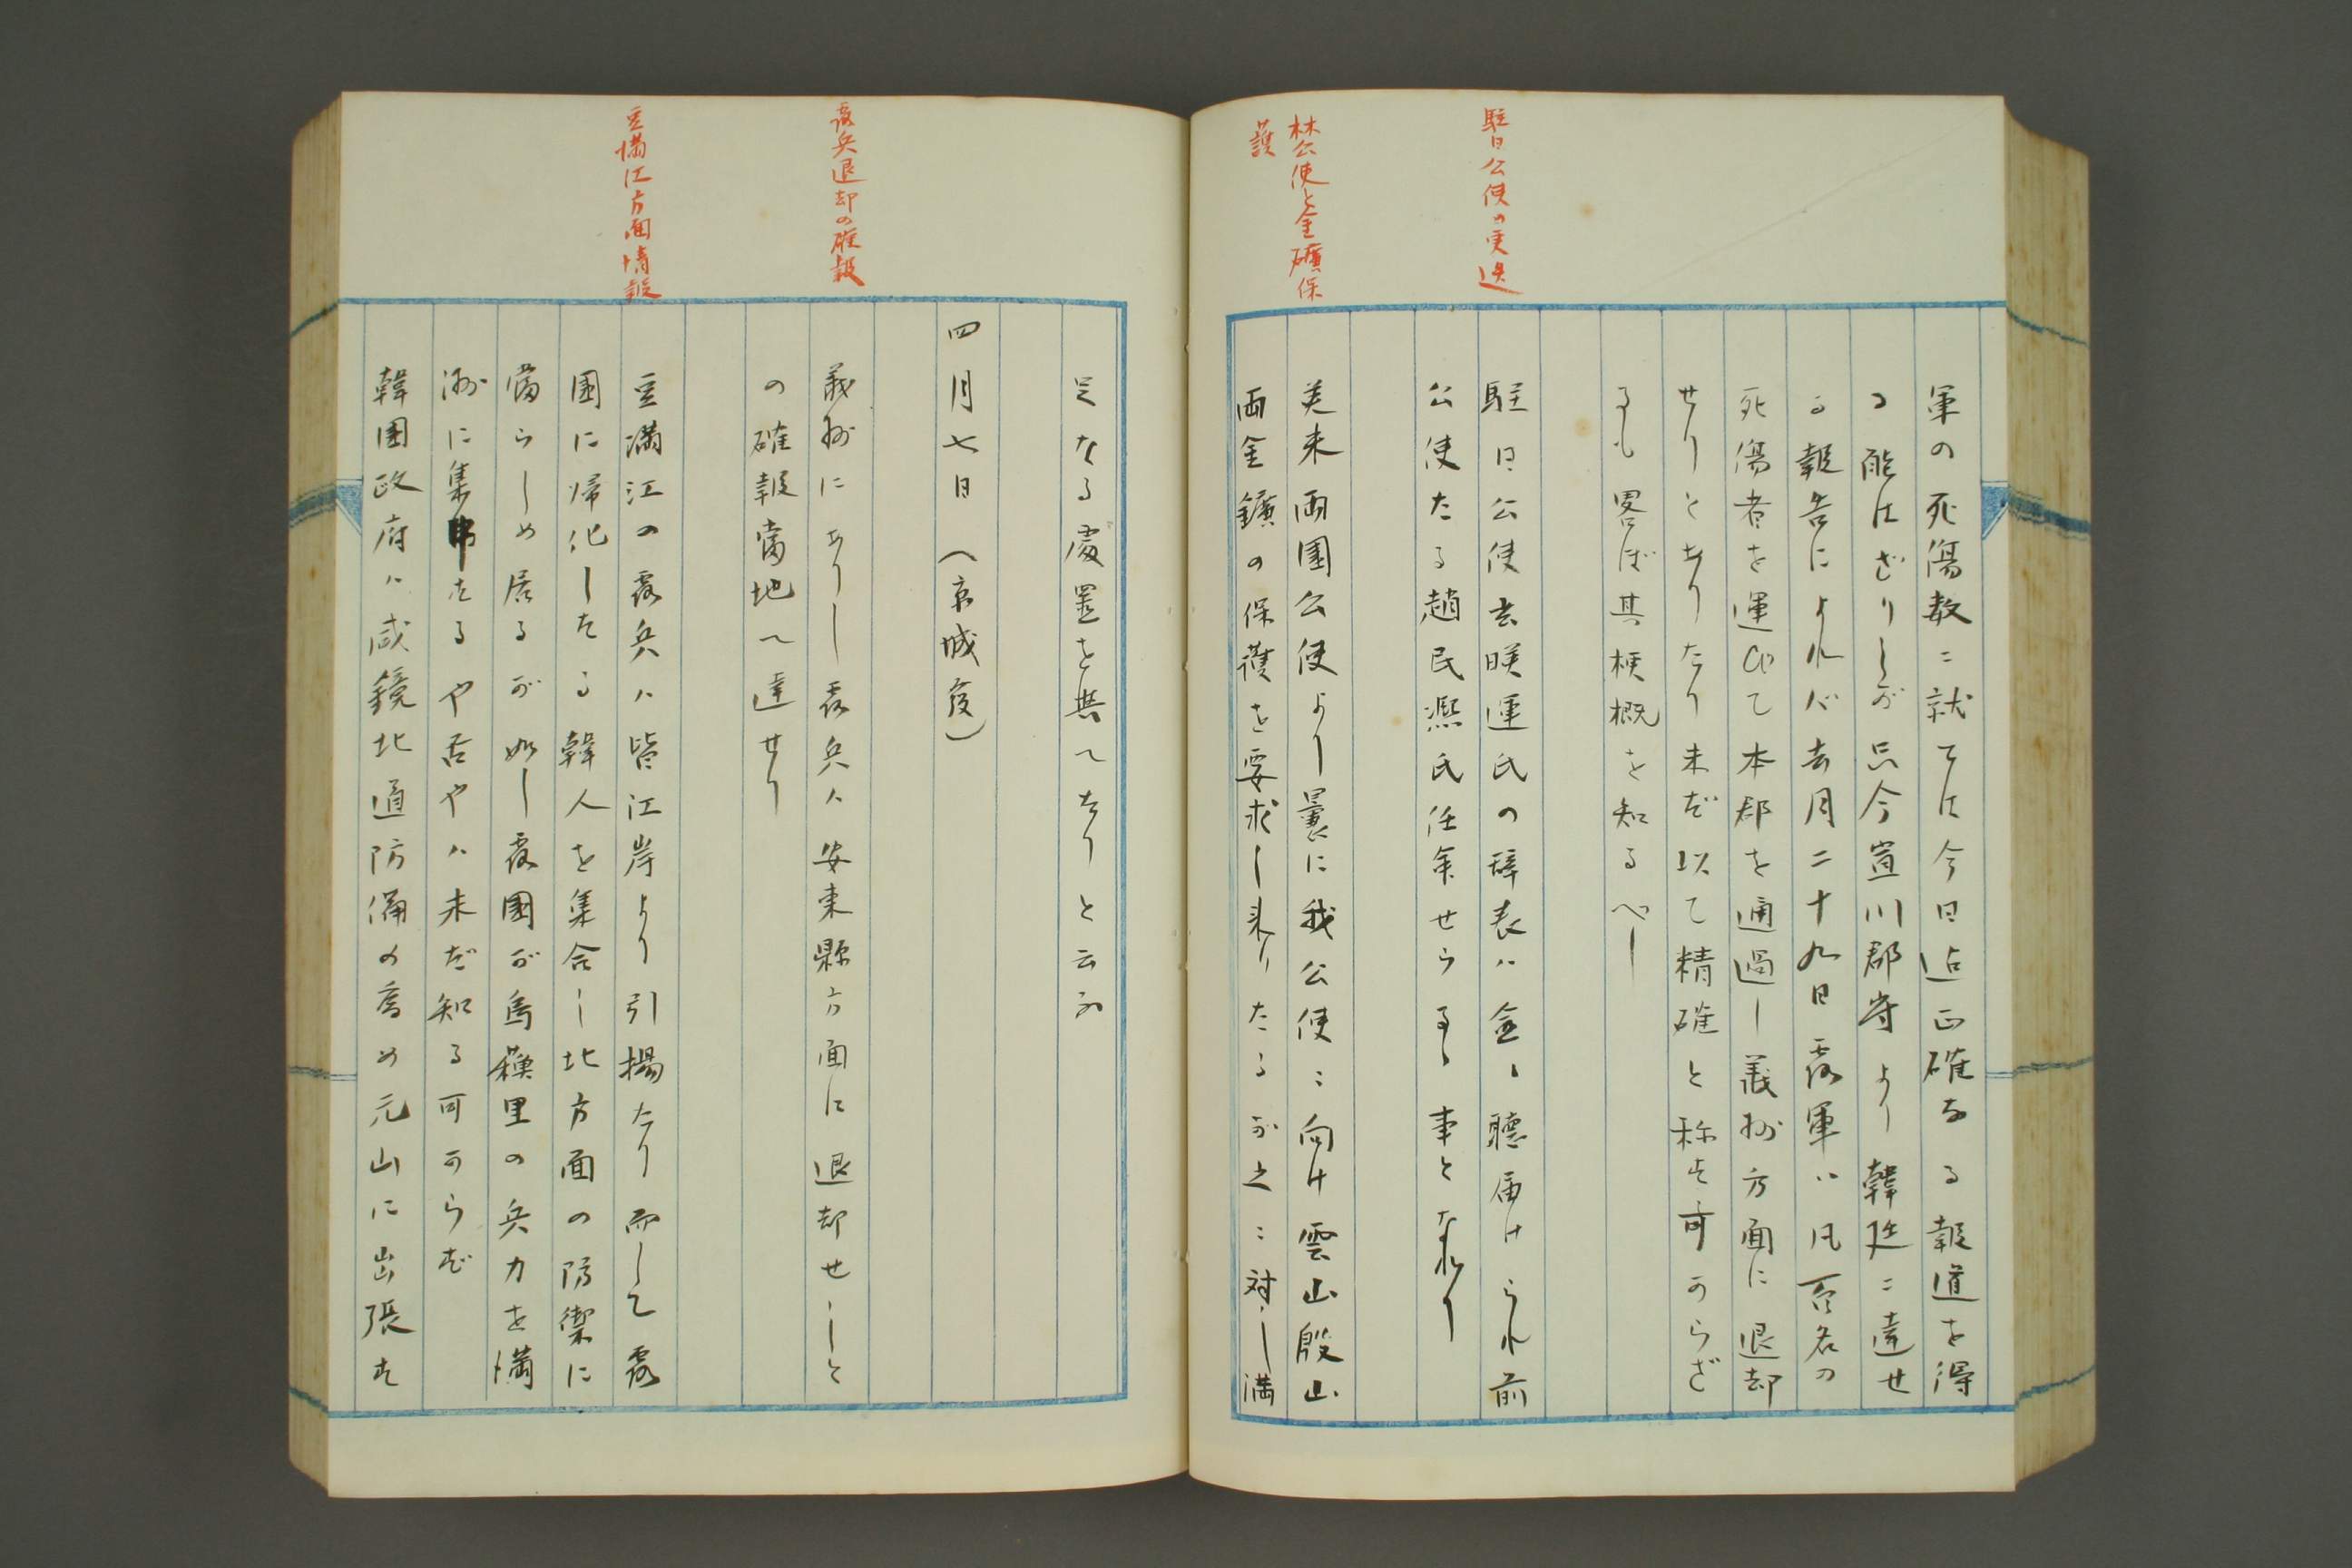 軍の死傷数ニ就ては今日迠正確なる報道を得
る能はざりしが只今宣川郡守より韓廷ニ達せ
る報告によれバ去月二十九日露軍ハ凡百名の
死傷者を運びて本郡を通過し義州方面に退却
せりとありたり未だ以て精確と称す可からざ
るも畧ぼ其梗概を知るべし
駐日公使の更迭
駐日公使玄暎運氏の辞表ハ愈〻聴届けられ前
公使たる趙民凞氏任命せらるゝ事となれり
林公使と金礦保
護
美来両國公使より曩に我公使ニ向け雲山殷山
両金鑛の保護を要求し来りたるが之ニ対し満
足なる處置を與へたりと云ふ
四月七日（京城發）
露兵退却の確報
義州にありし露兵ハ安東縣方面に退却せしと
の確報當地へ達せり
豆満江方面情報
豆満江の露兵ハ皆江岸より引揚たり而して露
國に帰化したる韓人を集合し北方面の防禦に
當らしめ居るが如し露國が烏蘓里の兵力を満
洲に集中するや否やハ未だ知る可からず
韓國政府ハ咸鏡北道防備の為め元山に出張す